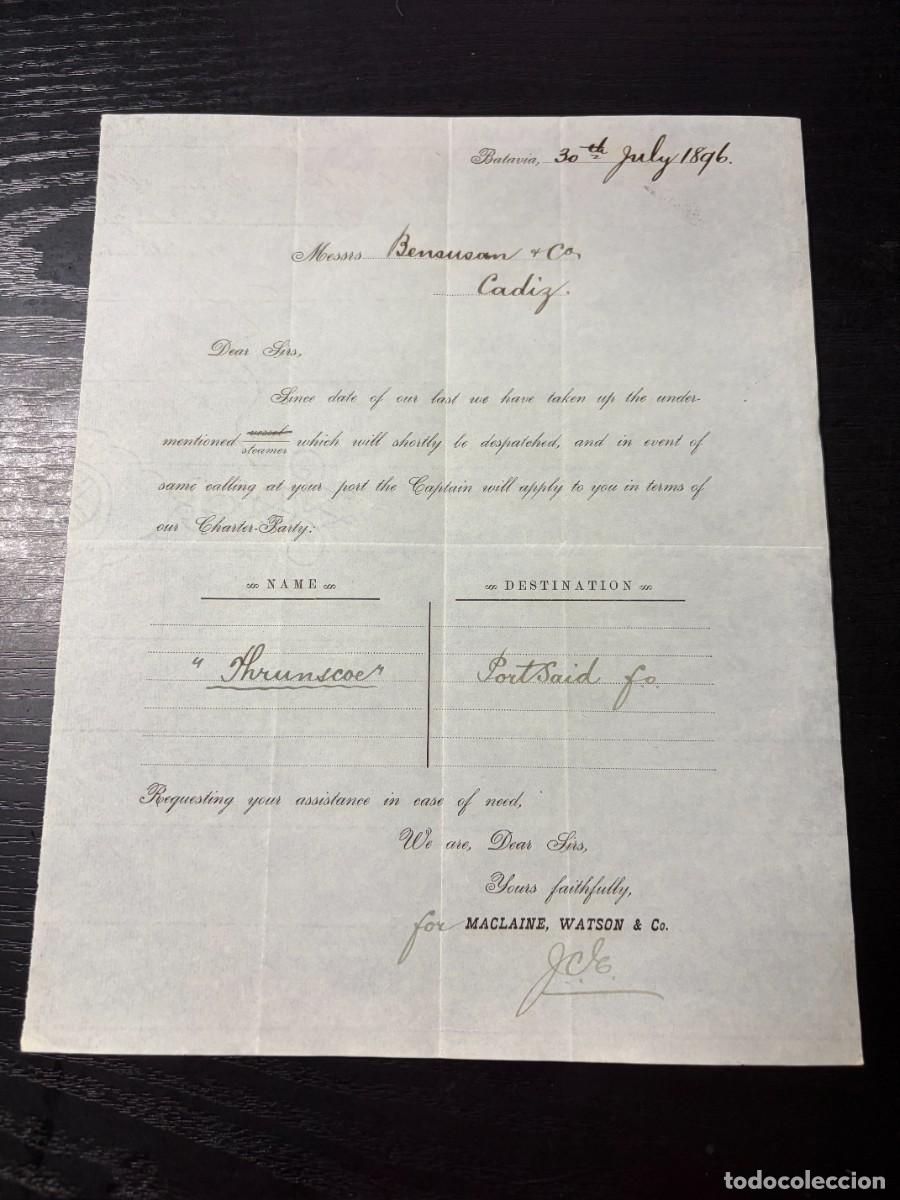 Batavia, 30th July 1896.
Messrs Bensusan & Co,
Cadiz.
Dear Sirs,
Since date of our last we have taken up the under-
mentioned vessel
steamer which will shortly be despatched, and in event of
same calling at your port the Captain will apply to you in terms of
our Charter-Party:
NAME DESTINATION
"Thrunscoe" Port Said f.o.
Requesting your assistance in case of need,
We are, Dear Sirs,
Yours faithfully,
for MACLAINE, WATSON & Co.
todocoleccion